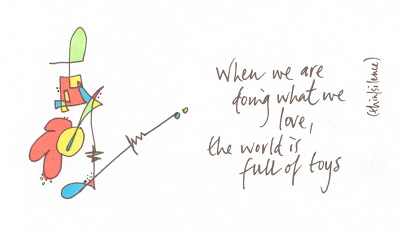 When we are
doing what we
love,
the world is
full of toys
(thinsilence)